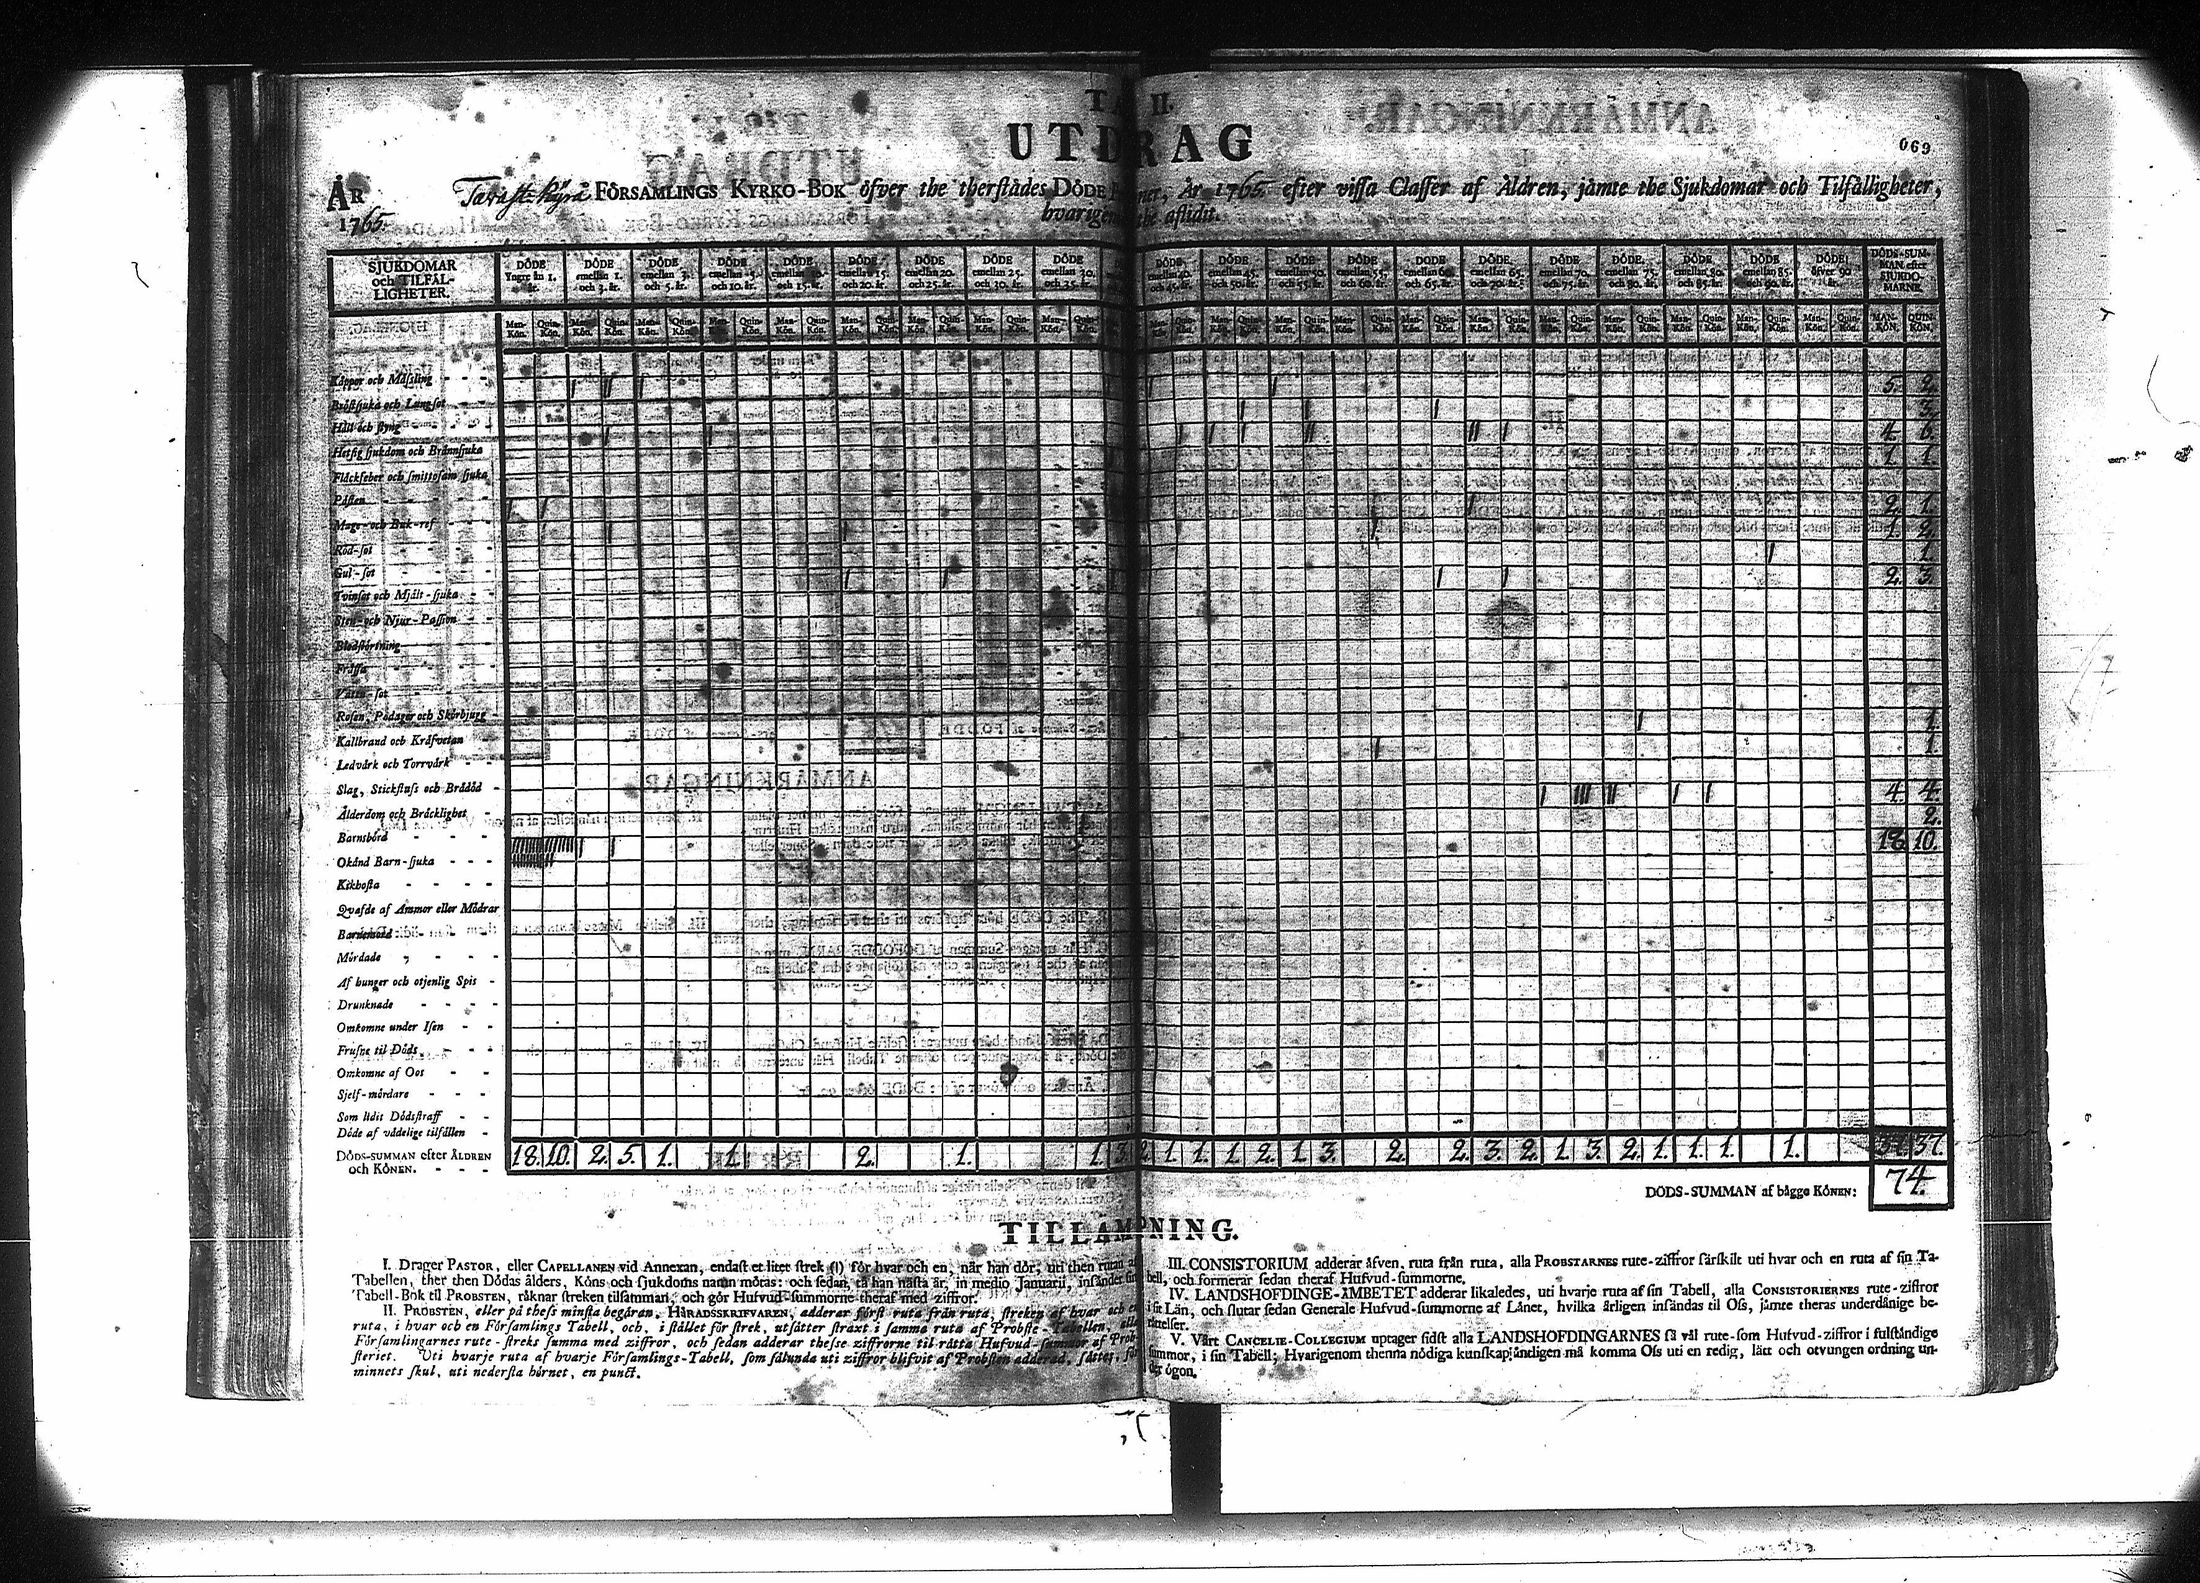 TA II.
UTDRAG
069
ÅR 1765.
Tavast-Kyrö FÖRSAMLINGS KYRKO-BOK öfver the therstädes DÖDE År 1765 efter vissa Classer af Åldren, jämte the Sjukdomar och Tilfälligheter,
the aflidit.
SJUKDOMAR och TILFÄLLIGHETER.
DÖDE Yngre än 1. år.
DÖDE emellan 1. och 3. år.
DÖDE emellan 3. och 5. år.
DÖDE emellan 5. och 10. år.
DÖDE emellan 10. och 15. år.
DÖDE emellan 15. och 20. år.
DÖDE emellan 20. och 25. år.
DÖDE emellan 25. och 30. år.
DÖDE emellan 30. och 35. år.
DÖDE emellan 40. och 45. år.
DÖDE emellan 45. och 50. år.
DÖDE emellan 50. och 55. år.
DÖDE emellan 55. och 60. år.
DÖDE emellan 60. och 65. år.
DÖDE emellan 65. och 70. år.
DÖDE emellan 70. och 75. år.
DÖDE emellan 75. och 80. år.
DÖDE emellan 80. och 85. år.
DÖDE emellan 85. och 90. år.
DÖDE öfver 90 år.
DÖDS-SUMMAN efter SJUKDOMARNE.
MAN-KÖN. QUIN-KÖN.
Koppor och Mässling 5. 2.
Bröstsjuka och Lungsot 3.
Håll och styng 4. 6.
Hetsig sjukdom och Brännsjuka 1. 1.
Fläckfeber och smittosam sjuka
Pästen 2. 1.
Mage- och Buk-ref 1. 2.
Röd-sot 1.
Gul-sot 2. 3.
Tvinsot och Mjält-sjuka
Sten- och Njur-Passion
Blodstörtning
Frossa
Vattu-sot
Rosen, Podager och Skörbjugg 1.
Kallbrand och Kräfvetan 1.
Ledvärk och Torrvärk
Slag, Stickfluss och Bråddöd 4. 4.
Ålderdom och Bräcklighet 2.
Barnsbörd 18. 10.
Okänd Barn-sjuka
Kikhosta
Qvafde af Ammor eller Mödrar
Barnemord
Mördade
Af hunger och otjenlig Spis
Drunknade
Omkomne under Isen
Frusne til Döds
Omkomne af Oos
Sjelf-mördare
Som lidit Dödsstraff
Döde af vådelige tilfällen
DÖDS-SUMMAN efter ÅLDREN och KÖNEN. 18. 10. 2. 5. 1. 1. 2. 1. 1. 3. 2. 1. 1. 1. 2. 1. 3. 2. 2. 3. 2. 1. 3. 2. 1. 1. 1. 1. 37. 37.
DÖDS-SUMMAN af bägge KÖNEN: 74.
TILLÄMPNING.
I. Drager PASTOR, eller CAPELLANEN vid Annexan, endast et litet strek (I) för hvar och en, när han dör, uti then rutan af
Tabellen, ther then Dödas ålders, Köns och sjukdoms namn mötas: och sedan, tå han nästa år, in medio Januarii, insänder sin
Tabell-Bok til PROBSTEN, räknar streken tilsamman, och gör Hufvud-summorne theraf med ziffror.
II. PROBSTEN, eller på thess minsta begäran, HÄRADSSKRIFVAREN, adderar först ruta från ruta, streken af hvar och en
ruta, i hvar och en Församlings Tabell, och, i stället för strek, utsätter straxt i samma ruta af Probste-Tabellen, alla
Församlingarnes rute-streks summa med ziffror, och sedan adderar thesse ziffrorne til rätta Hufvud-summor af Prob-
steriet. Uti hvarje ruta af hvarje Församlings-Tabell, som sålunda uti ziffror blifvit af Probsten adderad, sättes, för
minnets skul, uti nedersta hörnet, en punct.
III. CONSISTORIUM adderar äfven, ruta från ruta, alla PROBSTARNES rute-ziffror särskilt uti hvar och en ruta af sin Ta-
bell, och formerar sedan theraf Hufvud-summorne.
IV. LANDSHÖFDINGE-ÄMBETET adderar likaledes, uti hvarje ruta af sin Tabell, alla CONSISTORIERNES rute-ziffror
i sit Län, och slutar sedan Generale Hufvud-summorne af Länet, hvilka årligen insändas til Oss, jämte theras underdånige be-
rättelser.
V. Vårt CANCELIE-COLLEGIUM uptager sidst alla LANDSHÖFDINGARNES så väl rute- som Hufvud-ziffror i fulständige
summor, i sin Tabell; Hvarigenom thenna nödiga kunskap ändteligen må komma Oss uti en redig, lätt och otvungen ordning un-
der ögon.